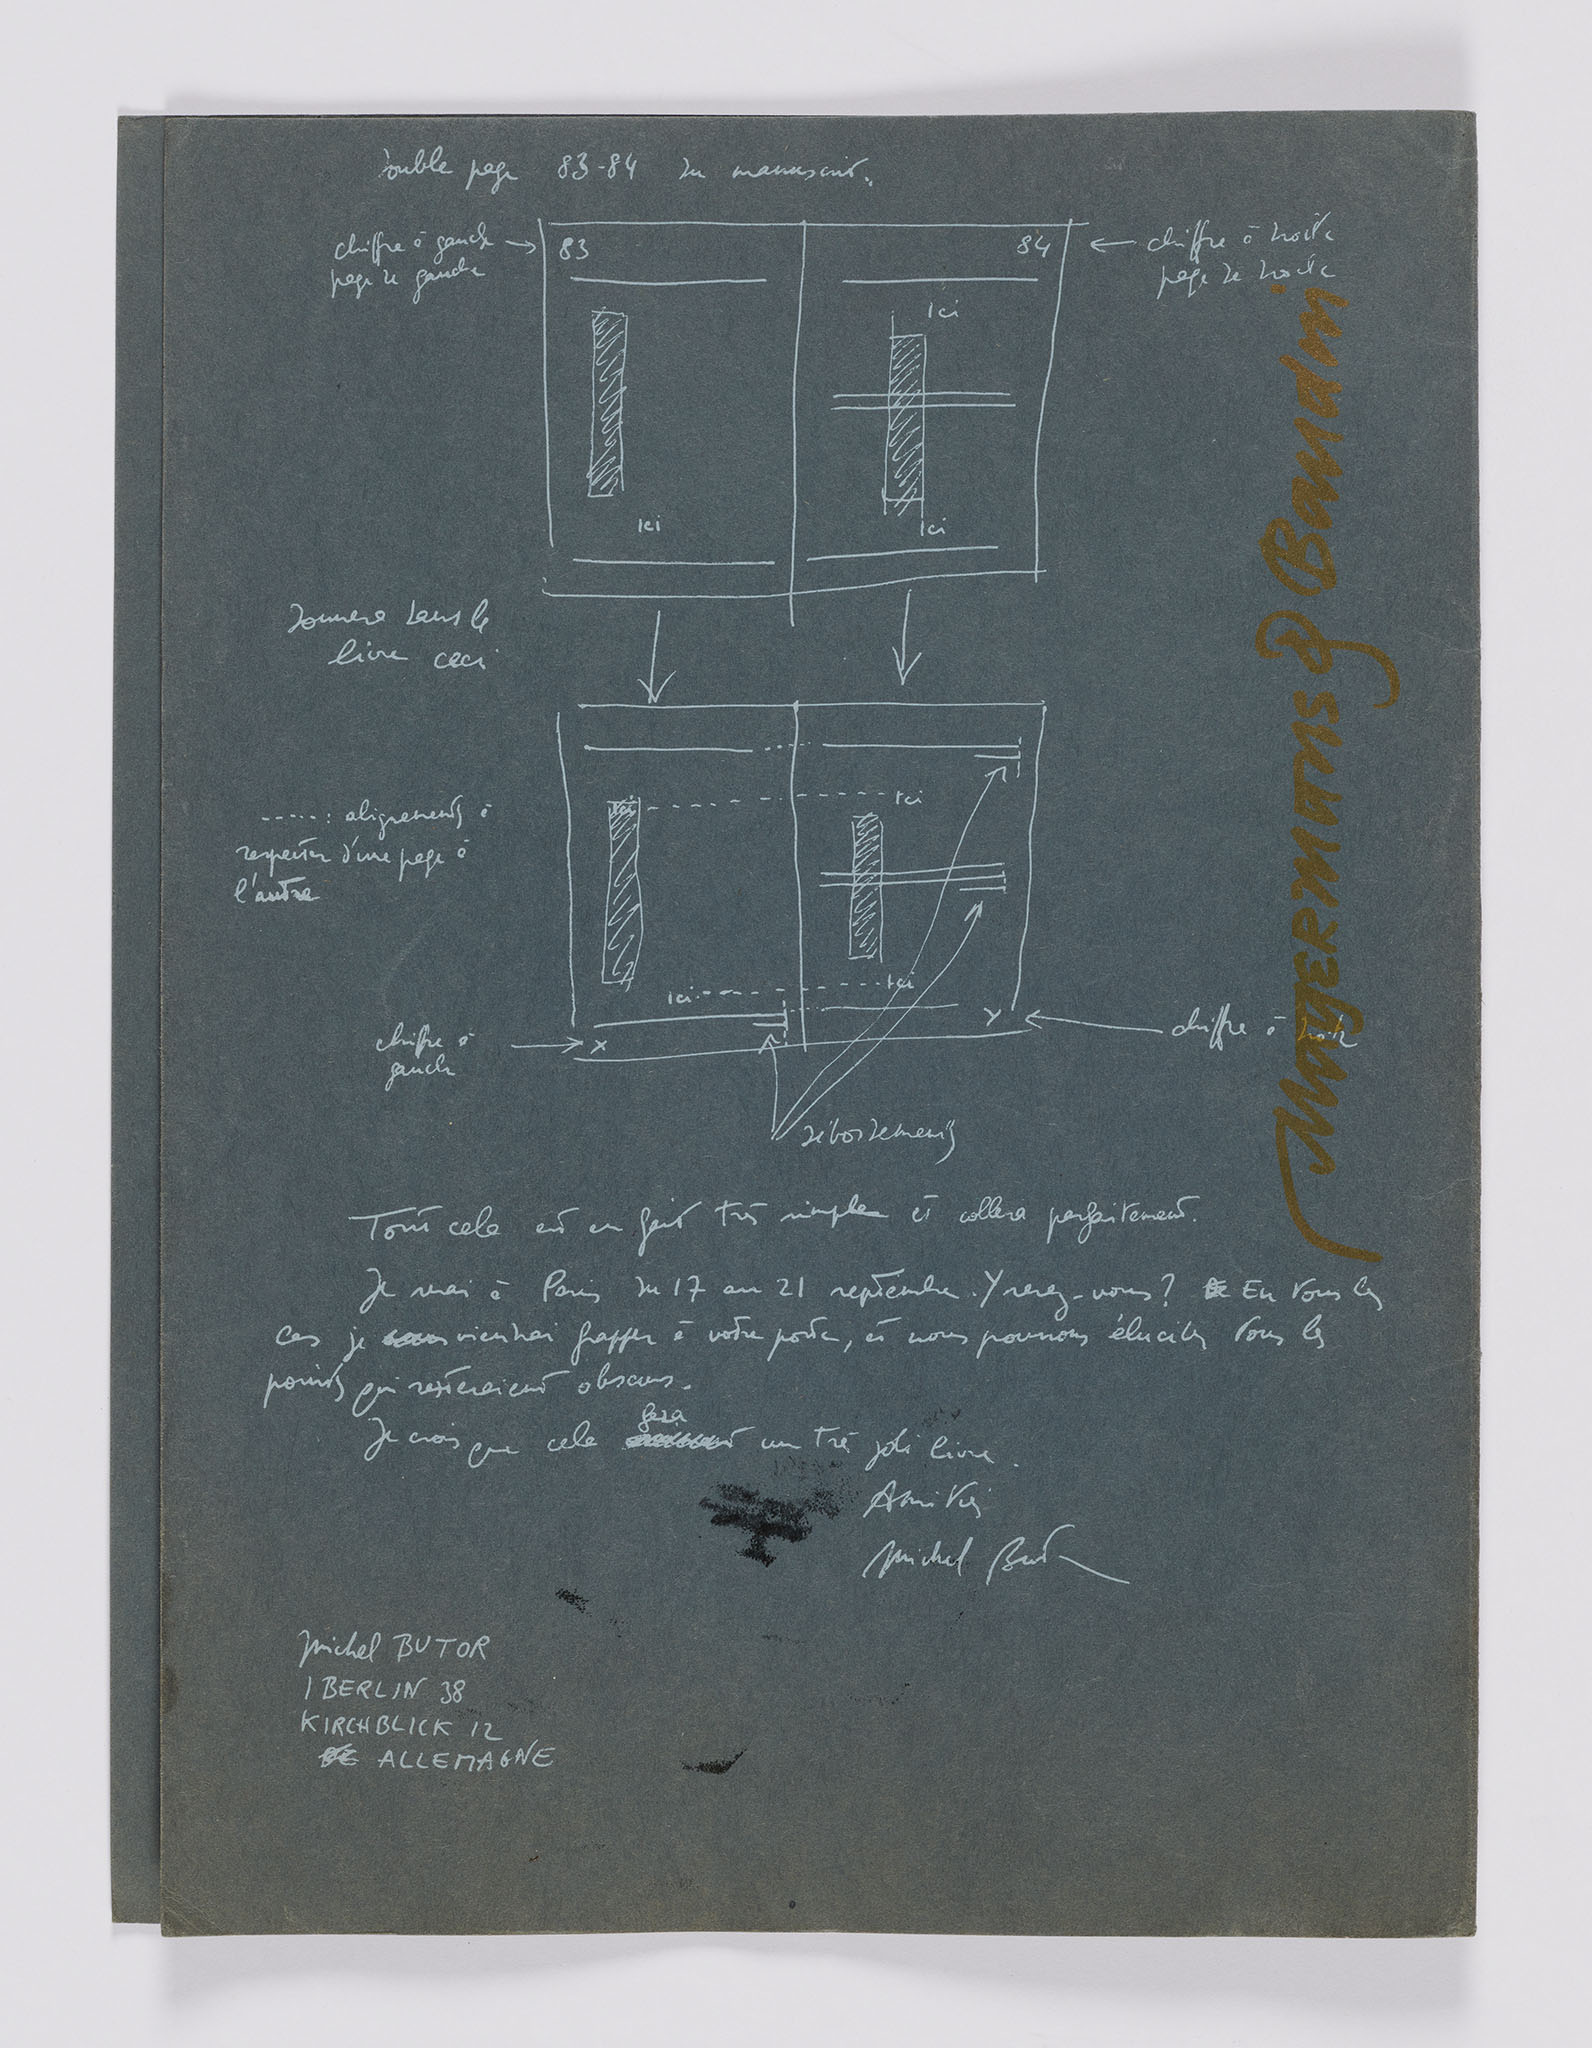 Double page 83-84 du manuscrit.
chiffre à gauche
page de gauche
83
84
chiffre à droite
page de droite
ici
ici
ici
Donnera dans le
livre ceci
ici
ici
-----: alignements à
respecter d'une page à
l'autre
ici
ici
chiffre à
gauche
x
y
chiffre à droite
débordements
Tout cela est en fait très simple et collera parfaitement.
Je serai à Paris du 17 au 21 septembre. Y serez-vous? En tous les
cas je viendrai frapper à votre porte, et nous pourrons élucider tous les
points qui resteraient obscurs.
Je crois que cela fera un très joli livre.
Amitiés
Michel Butor
Michel BUTOR
1 BERLIN 38
KIRCHBLICK 12
ALLEMAGNE
MAYERMANS & Bamadni